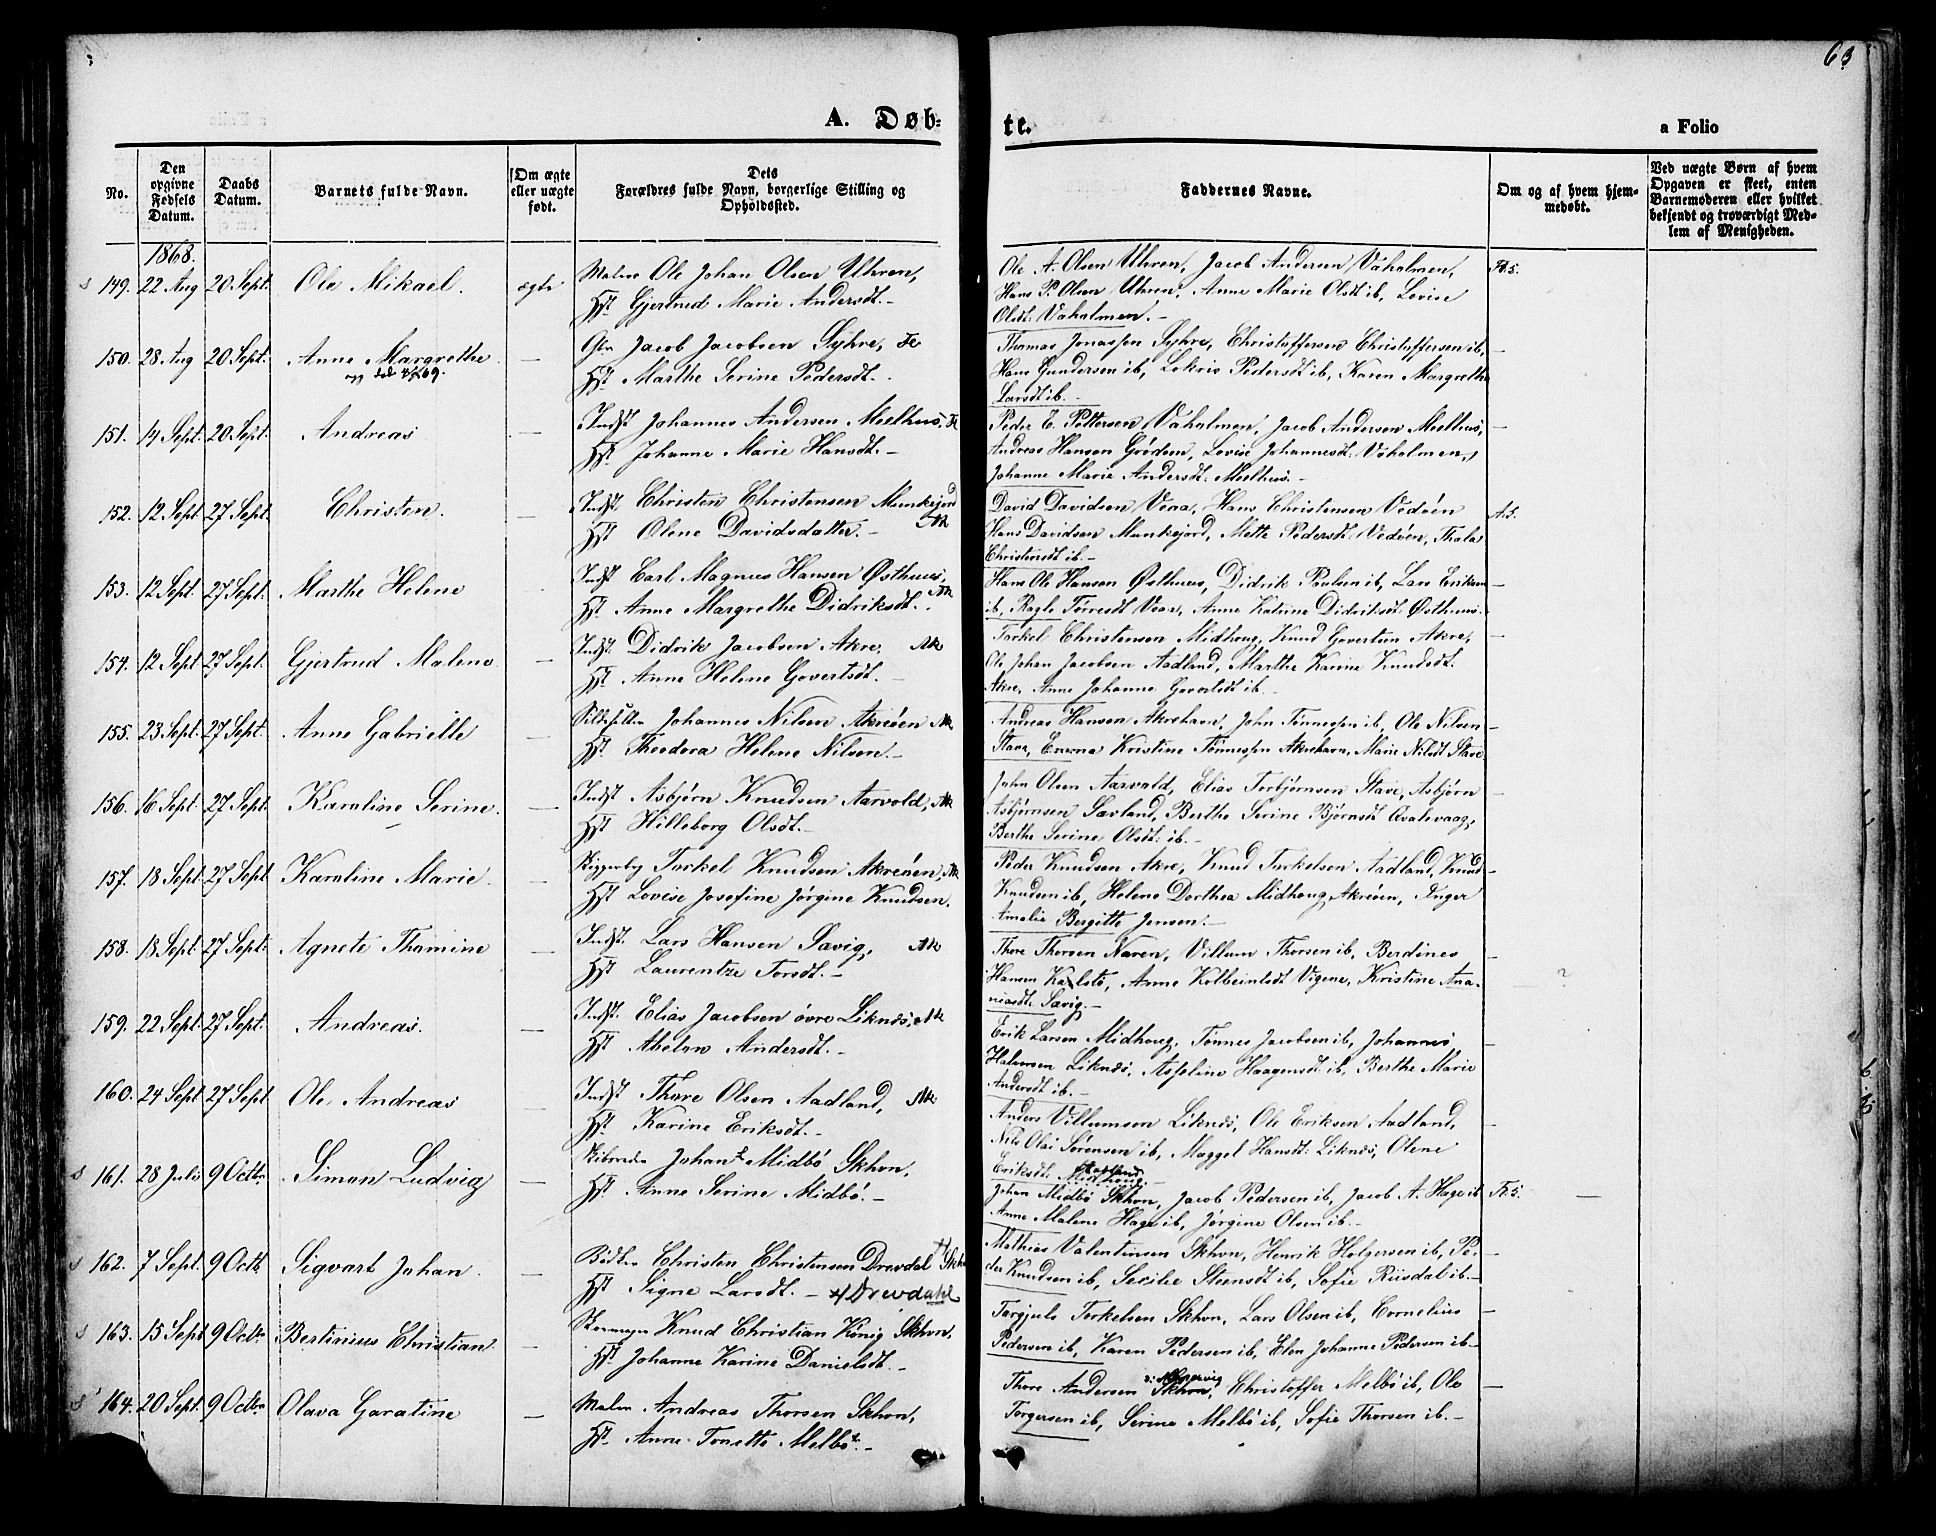 63
A. Døb-
te.
a Folio
No.
Den opgivne Fødsels Datum.
Daabs Datum.
Barnets fulde Navn.
Om ægte eller uægte født.
Dets Forældres fulde Navn, borgerlige Stilling og Opholdssted.
Faddernes Navne.
Om og af hvem hjemmedøbt.
Ved uægte Børn af hvem Opgaven er skeet, enten Barnemoderen eller hvilket bekjendt og troværdigt Medlem af Menigheden.
1868.
149. 22 Aug 20 Sept. Ole Mikael. ægte Maler Ole Johan Olsen Uhren,
Hst. Gjertrud Marie Andersdt. -
Ole A. Olsen Uhren, Jacob Andersen Vaholmen,
Hans P. Olsen Uhren, Anne Marie Olsdt ib, Lovise
Olsdt: Vaholmen. -
150. 28 Aug 20 Sept. Anne Margrethe — Jacob Jacobsen Syhre,
Hst Marthe Serine Pedersdt. -
Thomas Jonassen Syhre, Christoffersen Christoffersen ib,
Hans Gundersen ib, Lokris Pedersdt ib, Karen Margrethe
Larsdt ib. -
151. 14 Sept. 20 Sept. Andreas — Indst Johannes Andersen Meelhus,
Hst. Johanne Marie Hansdt. -
Peder E. Pettersen Vaholmen, Jacob Andersen Meelhus,
Andreas Hansen Grødem, Lovise Johannesdt: Vaholmen,
Johanne Marie Andersdt: Meelhus. -
152. 12 Sept 27 Sept. Christen. — Indst. Christen Christensen Munkejord Ak
Hst Olene Davidsdatter. -
David Davidsen Veaa, Hans Christensen Vedøen
Hans Davidsen Munkejord, Mette Pedersdt: Vedøen, Thalas
Christensdt ib. -
153. 12 Sept. 27 Sept. Marthe Helene Indst Carl Magnus Hansen Østhuus, Ak
Hst. Anne Margrethe Didriksdt. -
Hans Ole Hansen Østhuus, Didrik Poulsen ib, Lars Eriksen
ib, Ragle Torresdt Veaa, Anne Katrine Didriksdt: Østhuus.
154. 12 Sept 27 Sept. Gjertrud Malene — Indst. Didrik Jacobsen Akre, Ak
Hst. Anne Helene Govertsdt. -
Torkel Christensen Midhoug, Knud Govertsen Akre,
Ole Johan Jacobsen Aadland, Marthe Karine Knudsdt.
Akre, Anne Johanne Govertsdt ib. -
155. 23 Sept. 27 Sept. Anne Gabrielle — Johannes Nilsen Akreøen Ak
Hst. Theodora Helene Nilsen. -
Andreas Hansen Akrehavn, John Tønnessen ib, Ole Nilsen
Stave, Emma Kristine Tønnessen Akrehavn, Marie Nilsdt Stave
156. 16 Sept. 27 Sept Karoline Serine. — Indst Asbjørn Knudsen Aarvold, Ak
Hst Hilleborg Olsdt. -
John Olsen Aarvold, Elias Torbjørnsen Stave, Asbjørn
Asbjørnsen Sævland, Berthe Serine Bjørnsdt Qvalevaag,
Berthe Serine Olsdt: ib. -
157. 18 Sept. 27 Sept Karoline Marie — Torkel Knudsen Akreøen, Ak
Hst Lovise Josefine Jørgine Knudsen.
Peder Knudsen Akre, Knud Torkelsen Aadland, Knud
Knudsen ib, Helene Dorthea Midhoug Akreøen, Inger
Amalie Bergitte Jensen. -
158. 18 Sept. 27 Sept. Agnete Thamine — Indst. Lars Hansen Sævig, Ak
Hst Laurentze Torsdt. -
Thore Thorsen Naren, Villum Thorsen ib, Berdines
Hansen Kalstø, Anne Kolbeinsdt Vigene, Kristine Ana-
niasdt: Sævig. -
159. 22 Sept. 27 Sept. Andreas. — Indst. Elias Jacobsen øvre Liknes, Ak
Hst Abelone Andersdt. -
Erik Larsen Midhoug, Tønnes Jacobsen ib, Johannes
Halvorsen Liknes, Asseline Haagensdt ib, Berthe Marie
Andersdt ib. -
160. 24 Sept 27 Sept Ole Andreas — Indst Thore Olsen Aadland, Ak
Hst. Karine Eriksdt. -
Anders Villumsen Liknes, Ole Eriksen Aadland,
Nils Olai Sørensen ib, Maggel Hansdt: Liknes, Olene
Eriksdt: Aadland
161. 28 Juli 9 Octbr Simon Ludvig — Johan Midbø Skhvn,
Hst. Anne Serine Midbø. -
Johan Midbø Skhvn, Jacob Pedersen ib, Jacob A. Hage ib
Anne Malene Hage ib, Jørgine Olsen ib. -
162. 7 Sept. 9 Octb Sigvart Johan. — Christen Christensen Drevdal Skhvn
Hst Signe Larsdt. - Drevdahl
Mathias Valentinsen Skhvn, Henrik Holgersen ib, Pe-
der Knudsen ib, Secilie Steensdt ib, Sofie Riisdal ib. -
163. 15 Sept 9 Octbr Bertinius Christian — Knud Christian König Skhvn,
Hst. Johanne Karine Danielsdt. -
Torgjuls Torkelsen Skhvn, Lars Olsen ib, Cornelius
Pedersen ib, Karen Pedersen ib, Elen Johanne Pedersen ib -
164. 20 Sept. 9 Octbr Olava Garatine — Maler Andreas Thorsen Skhvn,
Hst. Anne Tonette Melbø. -
Thore Andersen Skhvn, Christoffer Melbø ib, Ole
Torgersen ib, Serine Melbø ib, Sofie Thorsen ib. -